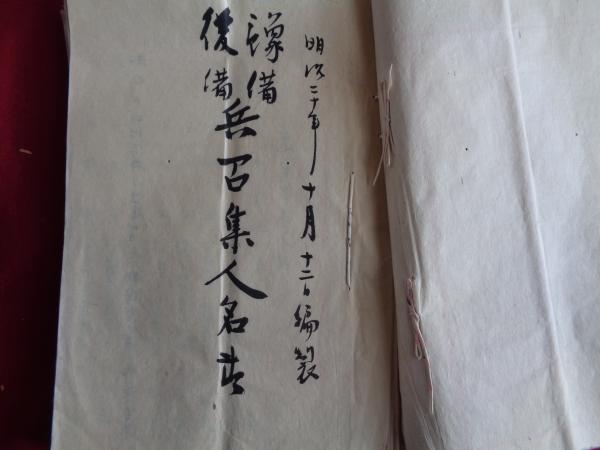 明治二十年十月十二日編製
豫備
後備
兵召集人名